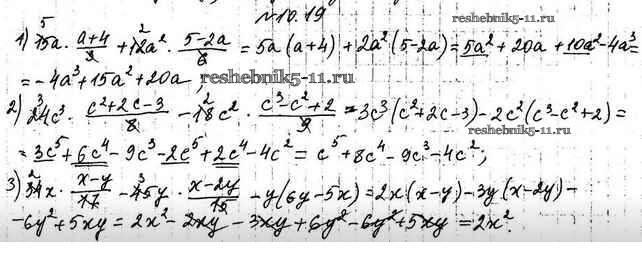 №10.19
www.reshebnik5-11.ru
1) 15a · (a+4)/3 + 12a² · (5-2a)/6 = 5a(a+4) + 2a²(5-2a) = 5a² + 20a + 10a² - 4a³
= -4a³ + 15a² + 20a;
www.reshebnik5-11.ru
2) 24c³ · (c²+2c-3)/8 - 18c² · (c³-c²+2)/9 = 3c³(c²+2c-3) - 2c²(c³-c²+2) =
www.reshebnik5-11.ru
= 3c⁵ + 6c⁴ - 9c³ - 2c⁵ + 2c⁴ - 4c² = c⁵ + 8c⁴ - 9c³ - 4c²;
3) 34x · (x-y)/17 - 45y · (x-2y)/15 - y(6y-5x) = 2x(x-y) - 3y(x-2y) -
-6y² + 5xy = 2x² - 2xy - 3xy + 6y² - 6y² + 5xy = 2x².